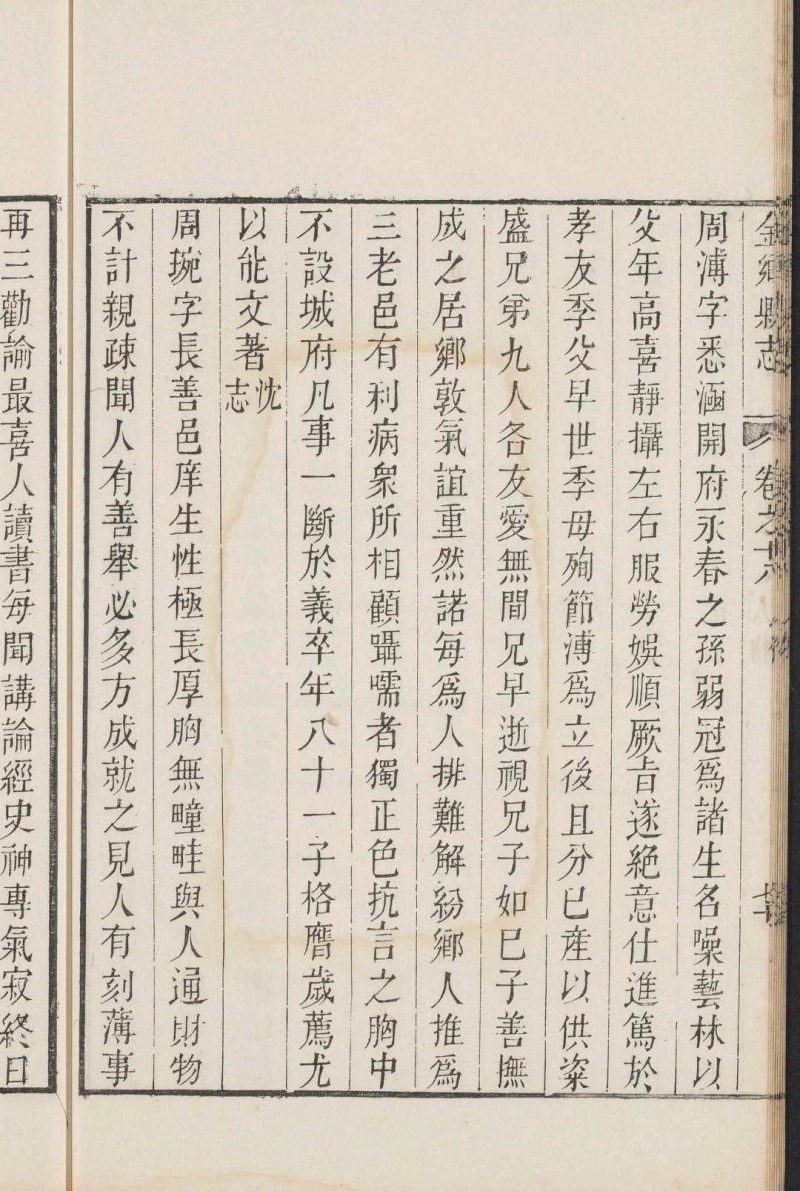 金鄉縣志 卷之
周溥字悉涵開府永春之孫弱冠爲諸生名噪藝林以
父年高喜靜攝左右服勞娛順厥旨遂絕意仕進篤於
孝友季父早世季母殉節溥爲立後且分已產以供粢
盛兄弟九人各友愛無間兄早逝視兄子如已子善撫
成之居鄉敦氣誼重然諾每爲人排難解紛鄉人推爲
三老邑有利病衆所相顧躡嚅者獨正色抗言之胸中
不設城府凡事一斷於義卒年八十一子格膺歲薦尤
以能文著沈志
周琬字長善邑庠生性極長厚胸無畽畦與人通財物
不計親疎聞人有善舉必多方成就之見人有刻薄事
再三勸諭最喜人讀書每聞講論經史神專氣寂終日